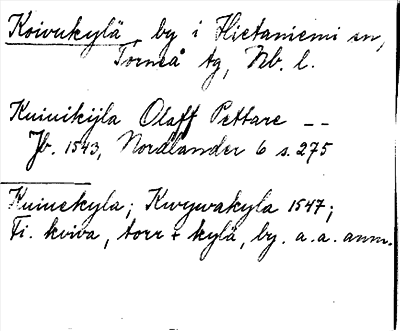 Koivukylä by i Hietaniemi sn,
Torneå tg, Nb. l.
Kuiuikijla Olaff Pettare --
Jb. 1543, Nordlander 6 s. 275
Kuiuekyla; Kwywakyla 1547;
Fi. kuiva, torr + kylä, by. a.a. anm.